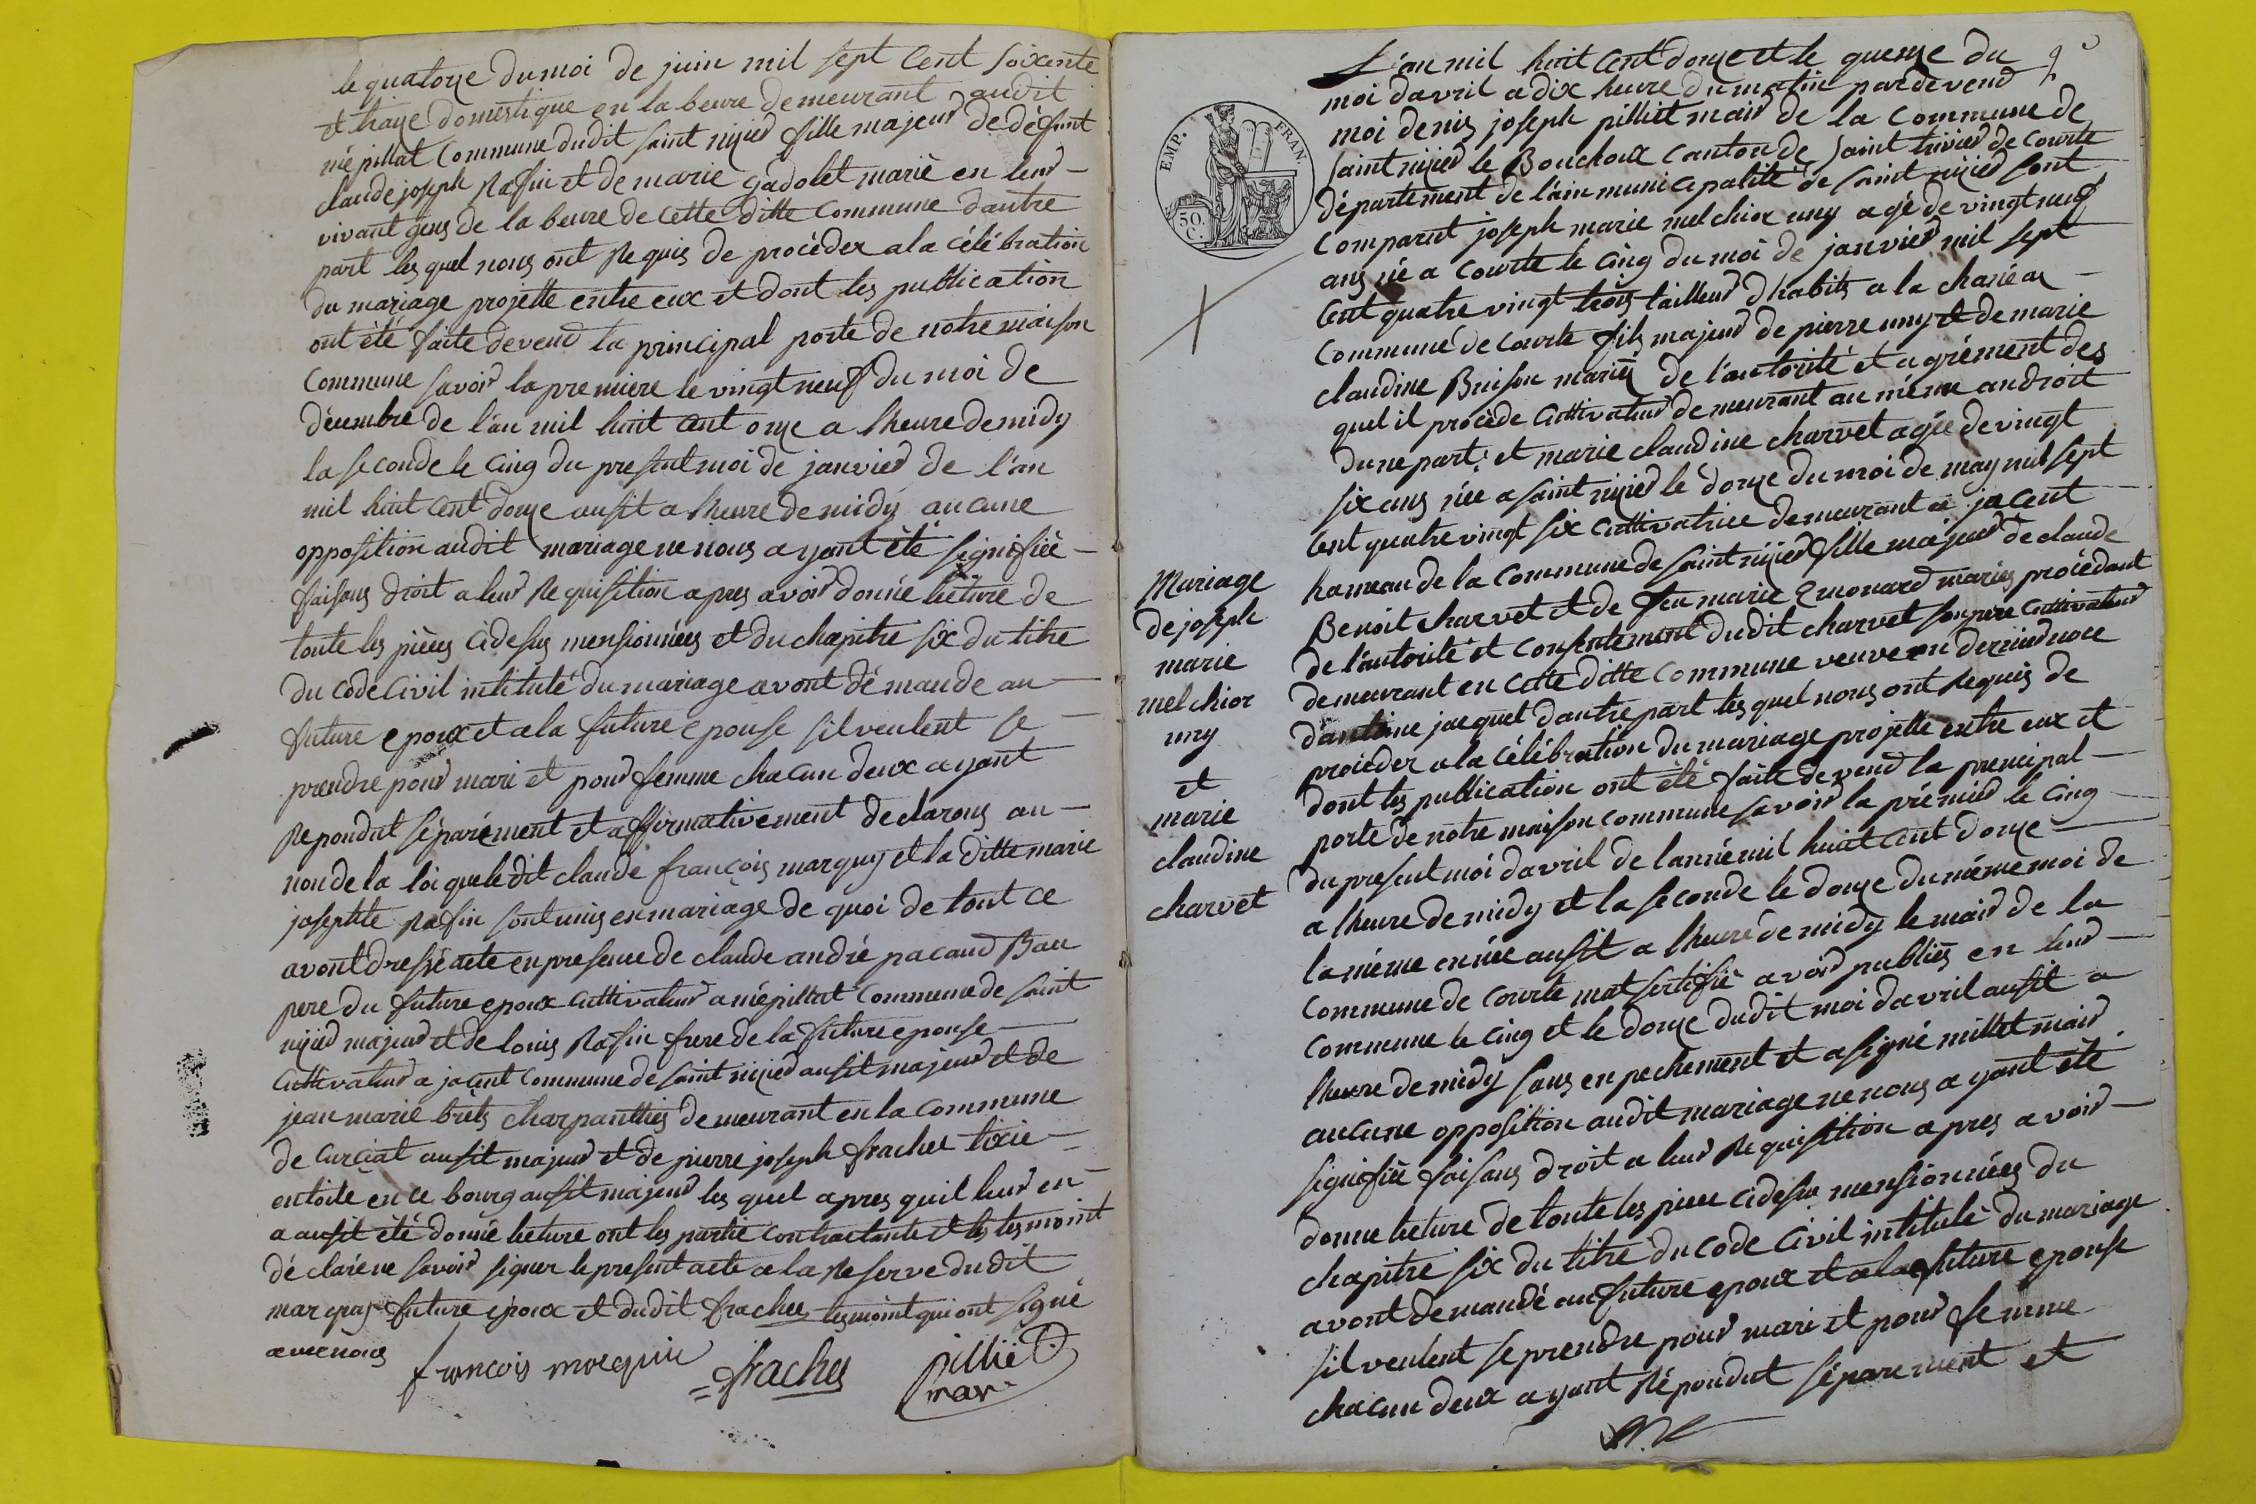 le quatorze du moi de juin mil sept Cent soixente
et traze domestique en la beuvre demeurant audit
mépillat Commune dudit saint nizier fille majeur de défunt
claude joseph Rafin et de marie gadolet marié en leur
vivant gens de la beuvre de cette ditte commune dautre
part les quel nous ont Requis de procéder a la célébration
du mariage projette entre eux et dont les publication
ont été faite devend la principal porte de notre maison
Commune savoir la premiere le vingt neuf du moi de
décembre de l'an mil huit Cent onze a lheure de midy
la seconde le cinq du present moi de janvier de l'an
mil huit Cent douze ausit a lheure de midy aucune
opposition audit mariage ne nous ayant été signifiée
faisons droit a leur Requisition apres avoir donné lecture de
toute les pièces cidesus mensionnées et du chapitre six du titre
du code Civil intitulé du mariage avont démande au
future epoux et a la future epouse sil veulent se
prendre pour mari et pour femme chacun deux ayant
Repondut séparément et affirmativement declarons au
non de la loi que ledit claude françois marquy et la ditte marie
josephte Rafin sont unis en mariage de quoi de tout ce
avont dressé acte en presence de claude andré pacaud Bau
pere du future epoux cultivateur a mépillat Commune de saint
nizier majeur et de louis Rafin frere de la future epouse
cultivateur a jacent commune de saint nizier ausit majeur et de
jean marie brets charpanttier demeurant en la commune
de curciat ausit majeur et de pierre joseph frachet tixie
en toile en ce bourg ausit majeur les quel apres quil leur en
a ausit été donné lecture ont les partie contractante et les tesmoint
déclaré ne savoir signer le present acte a la Reserve dudit
marquy future epoux et dudit frachet tesmoint qui ont signé
avec nous
francois morquin frachet pilliet
mar
L'an mil huit Cent douze et le quenze du
moi davril a dix heure du matin pardevend
moi denis joseph pilliet mair de la Commune de
saint nizier le Bouchoux canton de saint trivier de Courte
département de l'ain municipalité de saint nizier sont
comparut joseph marie melchior uny agé de vingt neuf
ans né a Courte le cinq du moi de janvier mil sept
Cent quatre vingt trois tailleur dhabits a la
Commune de courte fils majeur de pierre uny et de marie
claudine Buison mariés de l'autorité et agrément des
quel il procède Cultivateur demeurant au même androit
dune part et marie claudine charvet agée de vingt
six ans née a saint nizier le douze du moi de may mil sept
Cent quatre vingt six cultivatrice demeurant a jacent
hameau de la Commune de saint nizier fille majeur de claude
Benoit charvet et de feu marie Emonard mariés procédant
de l'autorité et consentement dudit charvet son pere cultivateur
demeurant en cette ditte commune veuve en dernier noce
dantoine jacquet dautre part les quel nous ont Requis de
procéder a la célébration du mariage projette entre eux et
dont les publication ont été faite devend la principal
porte de notre maison commune savoir la prémier le cinq
du present moi davril de lannée mil huit Cent douze
a lheure de midy et la seconde le douze du même moi de
la même année ausit a lheure de midy le mair de la
Commune de Courte mat sertifié avoir publiés en leur
Commune le cinq et le douze dudit moi davril ausit a
lheure de midy sans enpechement et a signé millet mair
aucune opposition audit mariage ne nous ayant été
signifiée faisons droit a leur Requisition apres avoir
donne lecture de toute les piece cidesus mensionnées du
chapitre six du titre du code Civil intitulé du mariage
avont demandé au future epoux et a la future epouse
sil veulent se prendre pour mari et pour femme
chacun deux ayant Répondut séparement et
EMP. FRAN.
50 C.
Mariage
de joseph
marie
melchior
uny
et
marie
claudine
charvet